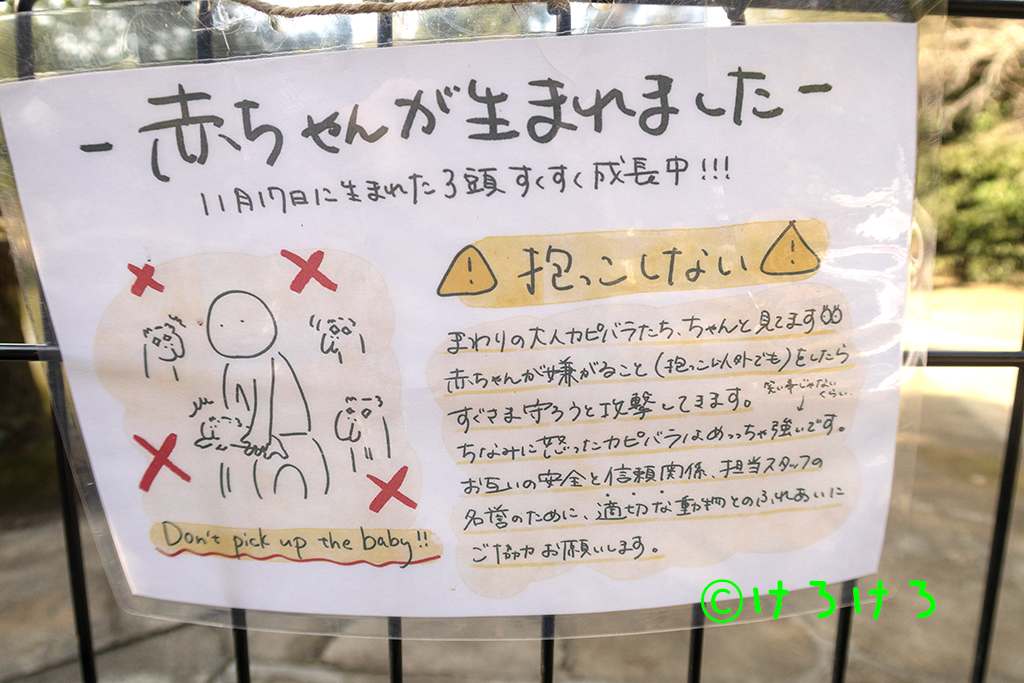 - 赤ちゃんが生まれました -
11月17日に生まれた3頭 すくすく成長中!!!
抱っこしない
まわりの大人カピバラたち、ちゃんと見てます
赤ちゃんが嫌がること(抱っこ以外でも)をしたら
すぐさま守ろうと攻撃してきます。
笑い事じゃない
くらい
ちなみに怒ったカピバラはめっちゃ強いです。
お互いの安全と信頼関係、担当スタッフの
名誉のために、適切な動物とのふれあいに
ご協力お願いします。
Don't pick up the baby!!
©けろけろ